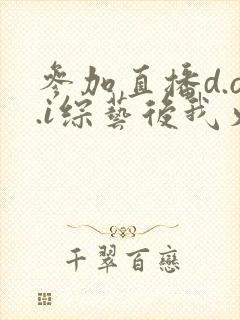 參加直播d.o
.i綜藝後我
千翠百戀